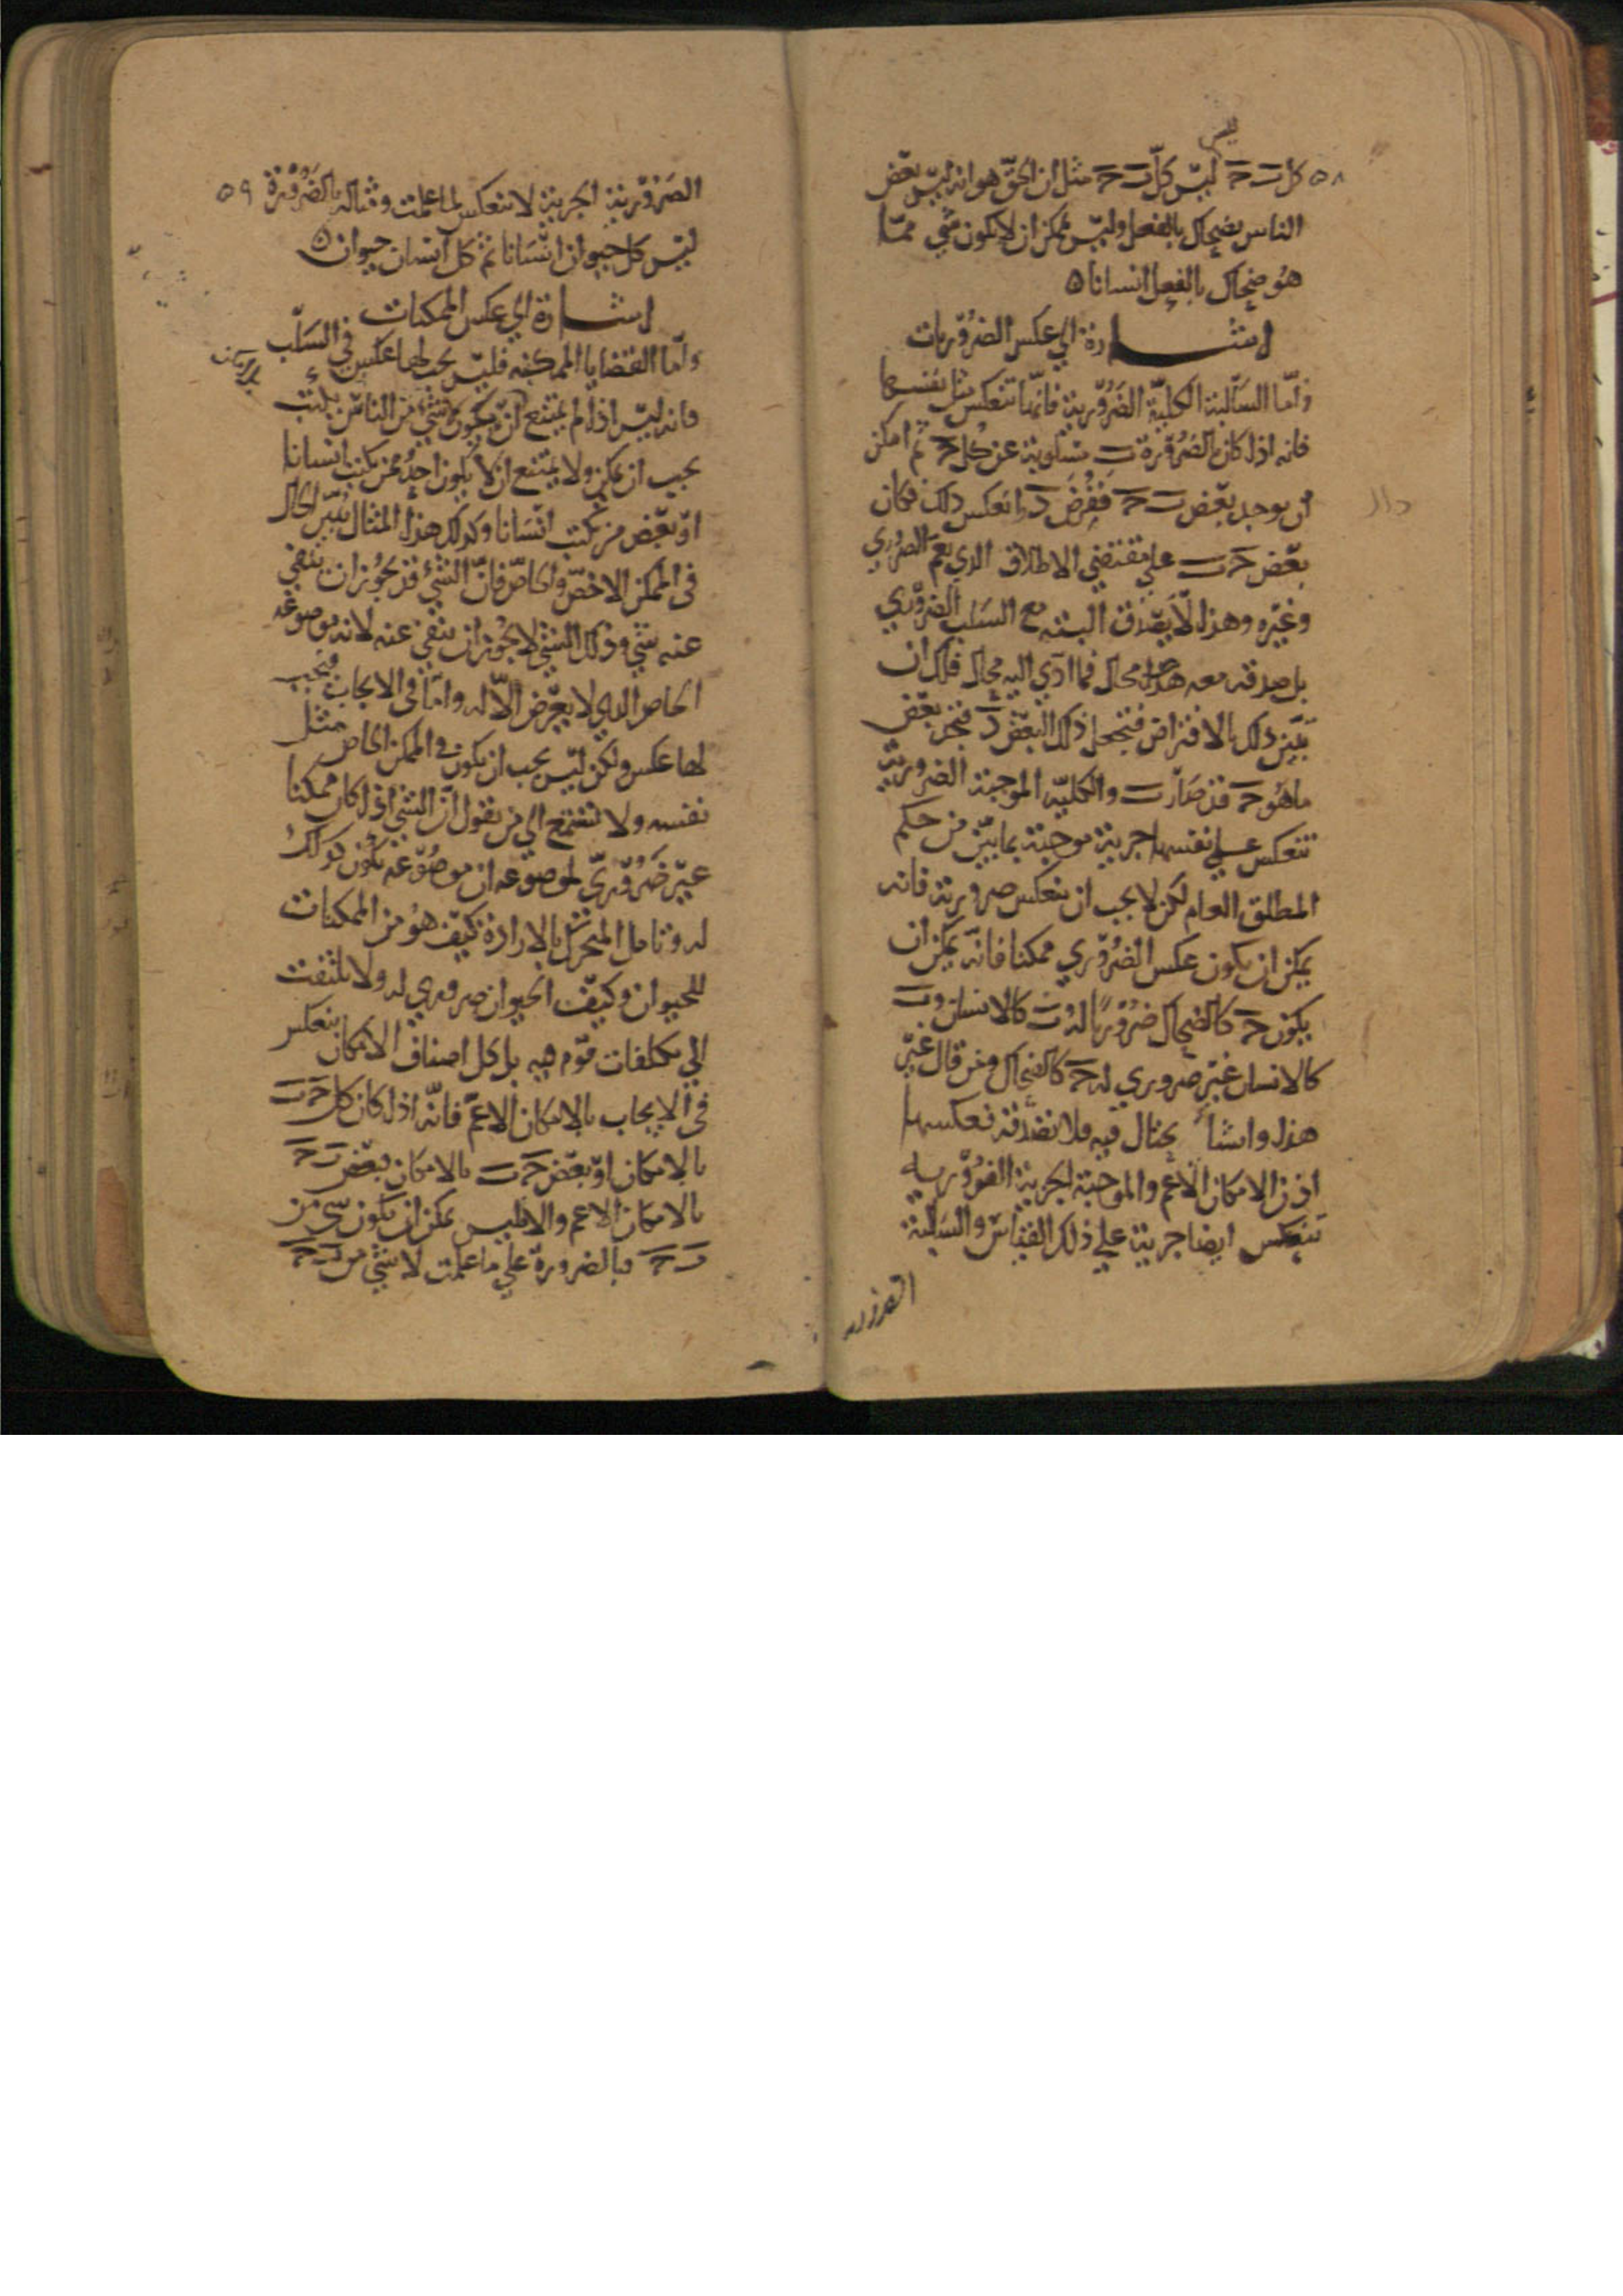 ليس
٥٨ كل ب ج ليس كل ب ج مثل ان الحق هو انه ليس بعض
الناس بضحاك بالفعل وليس يمكن ان لا يكون شي مما
هو ضحاك بالفعل انسانا ٥
اشارة الي عكس الضروريات
واما السالبة الكلية الضرورية فانها تنعكس مثل نفسها
فانه اذا كان بالضرورة ب مسلوبة عن كل ج ثم امكن
ان يوجد بعض ب ج ففرض د انعكس ذلك فكان
بعض ج ب علي مقتضي الاطلاق الذي يعم الضروري
وغيره وهذا لا يصدق البته مع السلب الضروري
بل صدقه معه محال فما ادي اليه محال فلك ان
تبين ذلك بالافتراض فتجعل ذلك البعض د فتجد بعض
ما هو ج قد صار ب والكليه الموجبة الضرورية
تنعكس علي نفسها جزيية موجبة بما بين من حكم
المطلق العام لكن لا يجب ان ينعكس ضرورية فانه
يمكن ان يكون عكس الضروري ممكنا فانه يمكن ان
يكون ج كالضحاك ضروريا له ب كالانسان وب
كالانسان غير ضروري له ج كالضحاك ومن قال غير
هذا وانشا يحتال فيه فلا تصدقه فعكسها
اذن الامكان الاعم والموجبة الجزيية الضروريه
تنعكس ايضا جزيية علي ذلك القياس والسالبة
الضرورية
الضرورية الجزيية لا تنعكس لما علمت ومثاله بالضرورة ٥٩
ليس كل حيوان انسانا ثم كل انسان حيوان ٥
اشارة الي عكس الممكنات
واما القضايا الممكنه فليس يجب لها عكس في السلب
فانه ليس اذا لم يمتنع ان يكون شي من الناس يكتب
يجب ان يمكن ولا يمتنع ان لا يكون احد ممن يكتب انسانا
او بعض من يكتب انسانا وكذلك هذا المثال يبين الحال
في الممكن الاخص والخاص فان الشي قد يجوز ان ينفي
عنه شي وذلك الشي لا يجوز ان ينفي عنه لانه موضوعه
الخاص الذي لا يعرض الا له واما في الايجاب فيجب
لها عكس ولكن ليس يجب ان يكون في الممكن الخاص مثل
نفسه ولا تستمع الي من يقول ان الشي اذا كان ممكنا
غير ضروري لموضوعه ان موضوعه يكون كذلك
له وتامل المتحرك بالارادة كيف هو من الممكنات
للحيوان وكيف الحيوان ضروري له ولا يلتفت
الي تكلفات قوم فيه بل كل اصناف الامكان ينعكس
في الايجاب بالامكان الاعم فانه اذا كان كل ج ب
بالامكان او بعض ج ب بالامكان بعض ب ج
بالامكان الاعم والا فليس يمكن ان يكون شي من
ب ج فبالضرورة علي ما علمت لا شي من ب ج